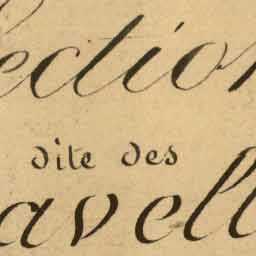 ection
dite des
avell